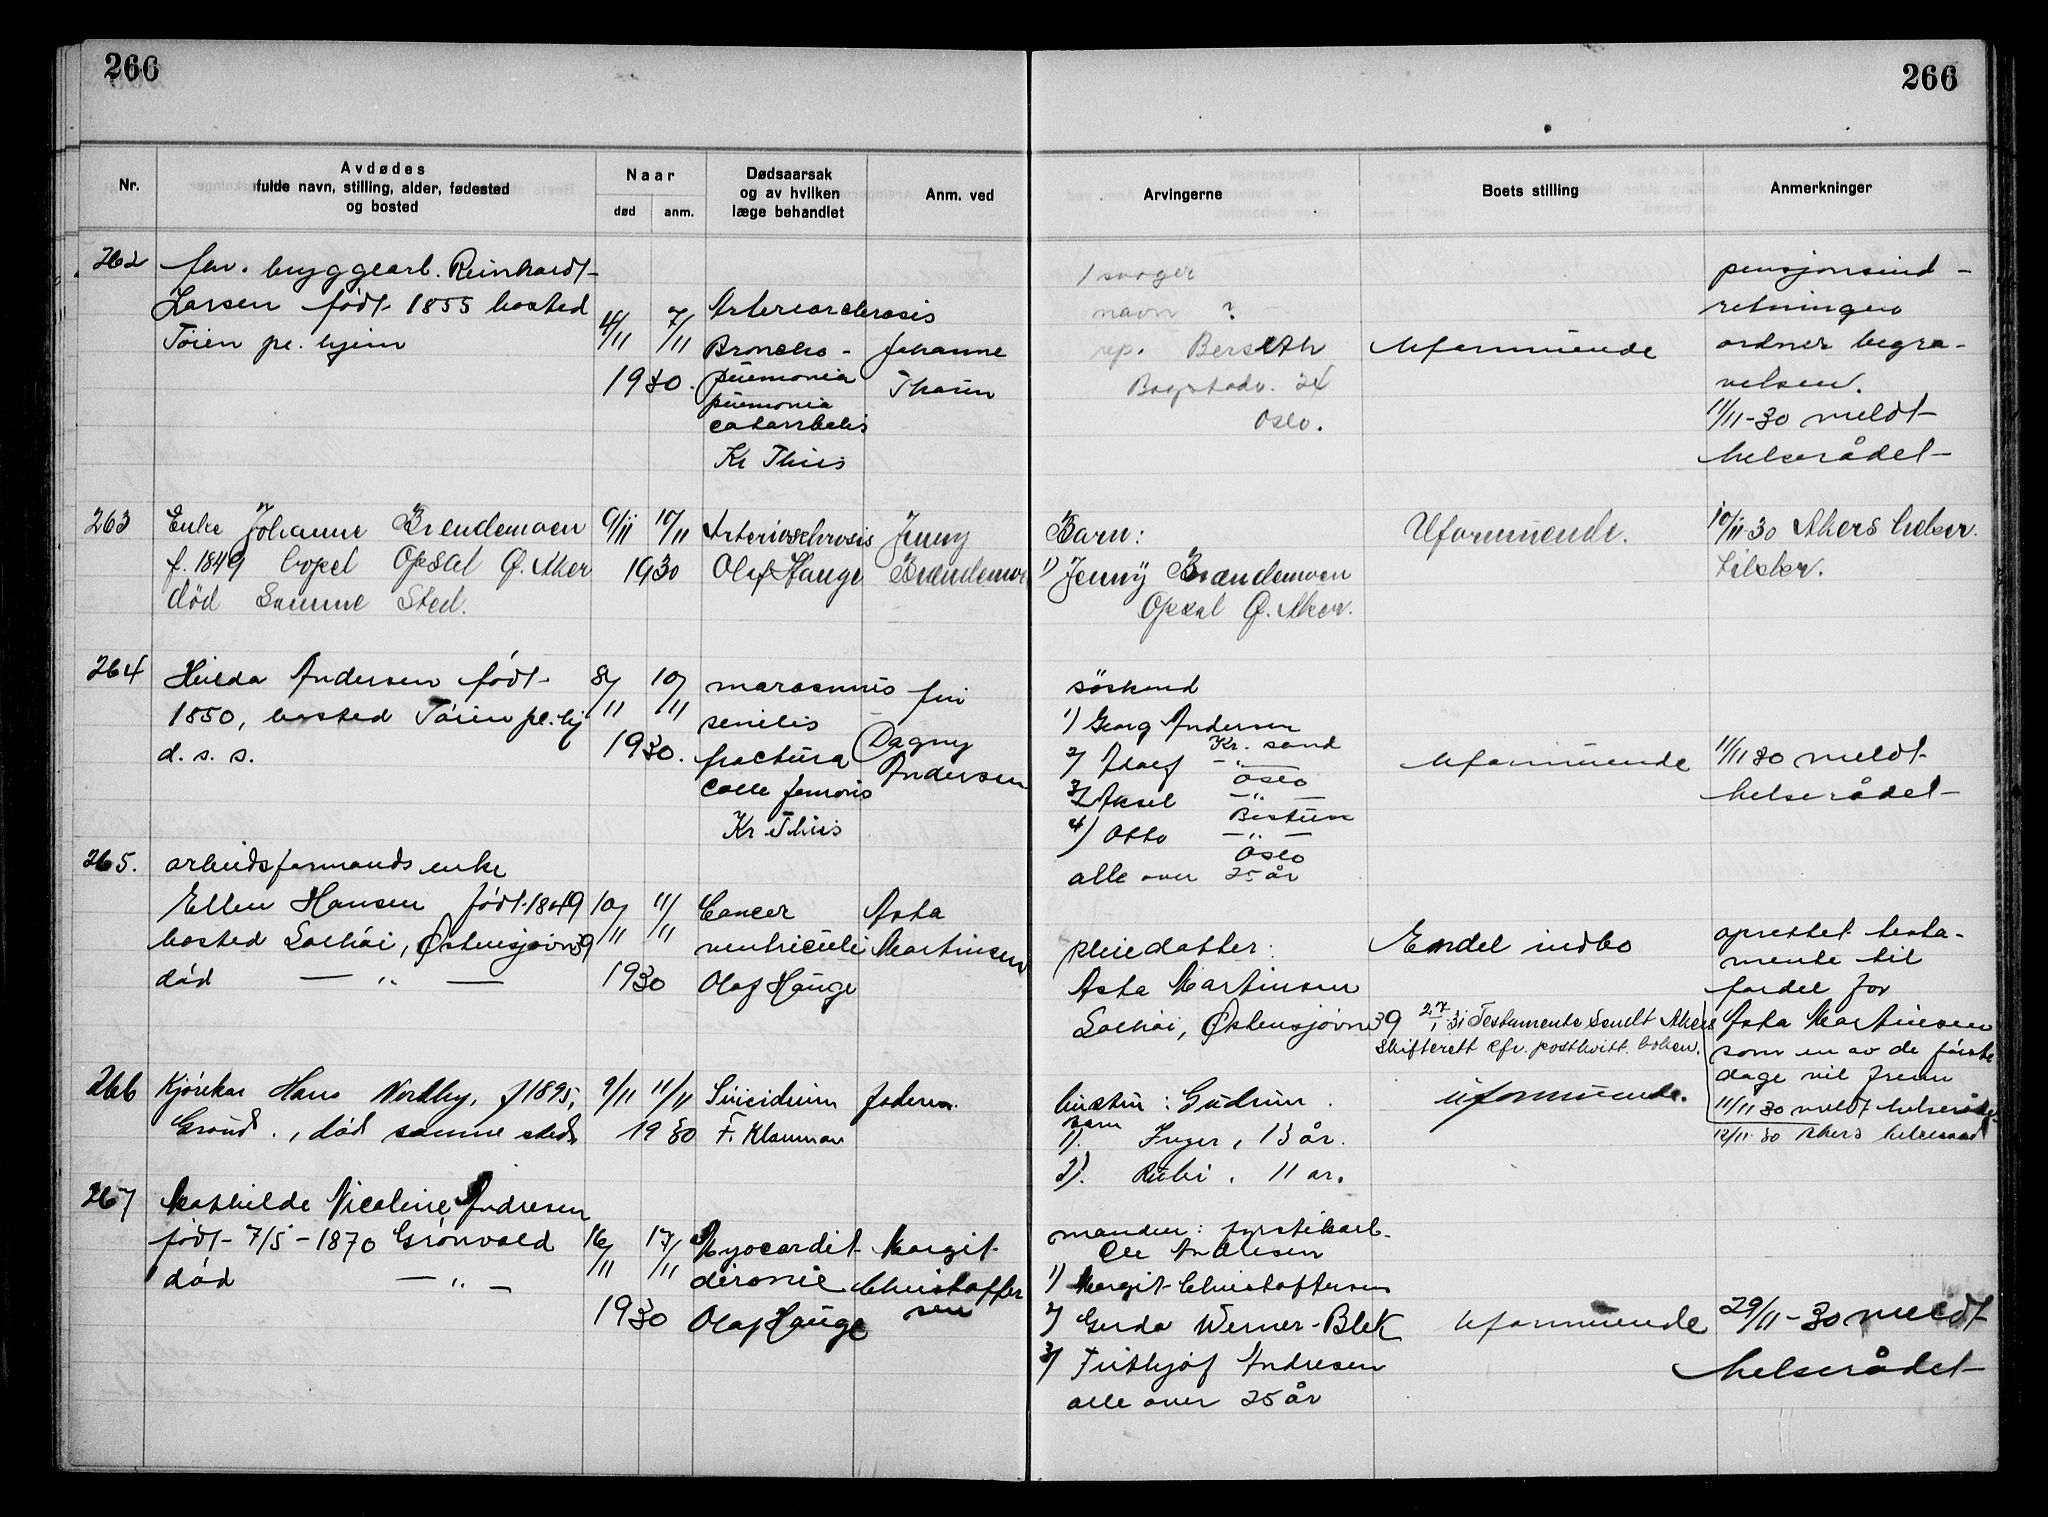 266
266
Nr.
Avdødes
fulde navn, stilling, alder, fødested
og bosted
Naar
død
anm.
Dødsaarsak
og av hvilken
læge behandlet
Anm. ved
Arvingerne
Boets stilling
Anmerkninger
262
fav. bryggearb. Reinhardt
Larsen født 1855 bosted
Töien pl. hjem
4/11 7/11
1930.
Arteriosclerosis
Broncho-
pnemonia
pnemonia
catarrhalis
Kr Thiis
Johanne
Thaún
1 svoger
navn ?
rep. Berseth
Bogstadv. 24
Oslo.
Uformúende
pensjonsind-
retningen
ordner begra-
velsen.
11/11-30 meldt
helserådet
263
Enke Johanne Brendemoen
f. 1849 bopel Opsal Ø. Aker
död Samme Sted.
9/11 10/11
1930
Arterioschrosis
Olaf Haúge
Jenny
Brændemoe
Barn:
1) Jenny Brændemoen
Opsal Ø. Aker.
Uformúende.
10/11-30 Akers helser.
264
Húlda Andersen födt
1850, bosted Töien pl. hj
d. s. s.
8/11 10/11
1930.
marasmus
senilis
fractúra
colle femoris
Kr Thiis
frú
Dagny
Andersen
söskend
1) Georg Andersen
Kr. sand
2) Adolf -"-
Oslo
3) Aksel -"-
Bestún
4) Otto -"-
Oslo
alle over 25 år
Uformúende
11/11 30 meldt
helserådet
265.
arbeidsformands enke
Ellen Hansen födt 1849
bosted Solhöi, Østensjövn 39
död -"-
10/11 11/11
1930
Cancer
ventriculi
Olaf Haúge
Asta
Martinsen
pleiedatter:
Asta Martinsen
Solhöi, Østensjövn 39
Endel indbo
27/1 31 Testamente Sendt Akers
Skifterett cfr. postkvitt. boken.
oprettet testa-
mente til
fordel for
Asta Martinsen
som en av de förste
dage vil frem
11/11 30 meldt helseråde
266
Kjörekar Hans Nordby, f 1895,
Grorúd., död samme sted
9/11 11/11
1930
Súicidium
F. Klouman
faderen.
hústrú: Gúdrún.
barn
1). Inger, 13 år.
2). Rúbi, 11 ar.
Uformúende.
12/11-30 Akers helseraad
267
Mathilde Nicoline Andresen
födt 7/5-1870 Grönvold
död -"-
16/11 17/11
1930
Myocardit
cironic
Olaf Haúge
Margit
Christoffer
sen
manden: fyrstikarb.
Ole Andresen
1) Margit Christoffersen
2) Gerda Werner-Blek
3) Frithjof Andresen
alle over 25 år
Uformúende
29/11-30 meldt
helserådet